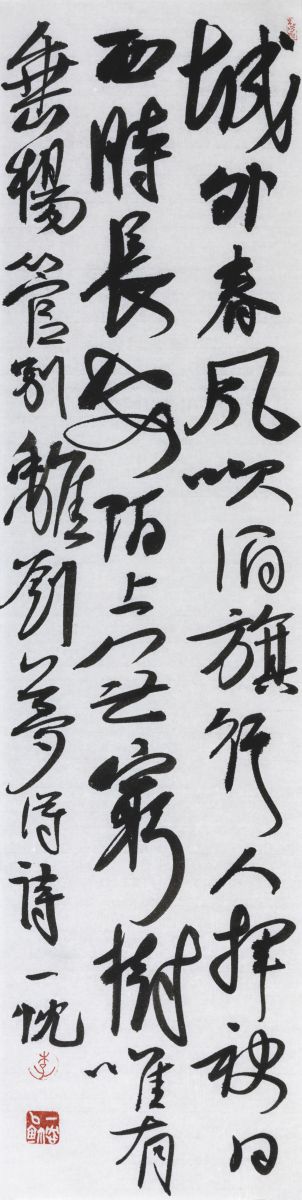 城外春風吹酒旗行人揮袂日
西時長安陌上無窮樹唯有
垂楊管別離劉夢得詩一忱
李